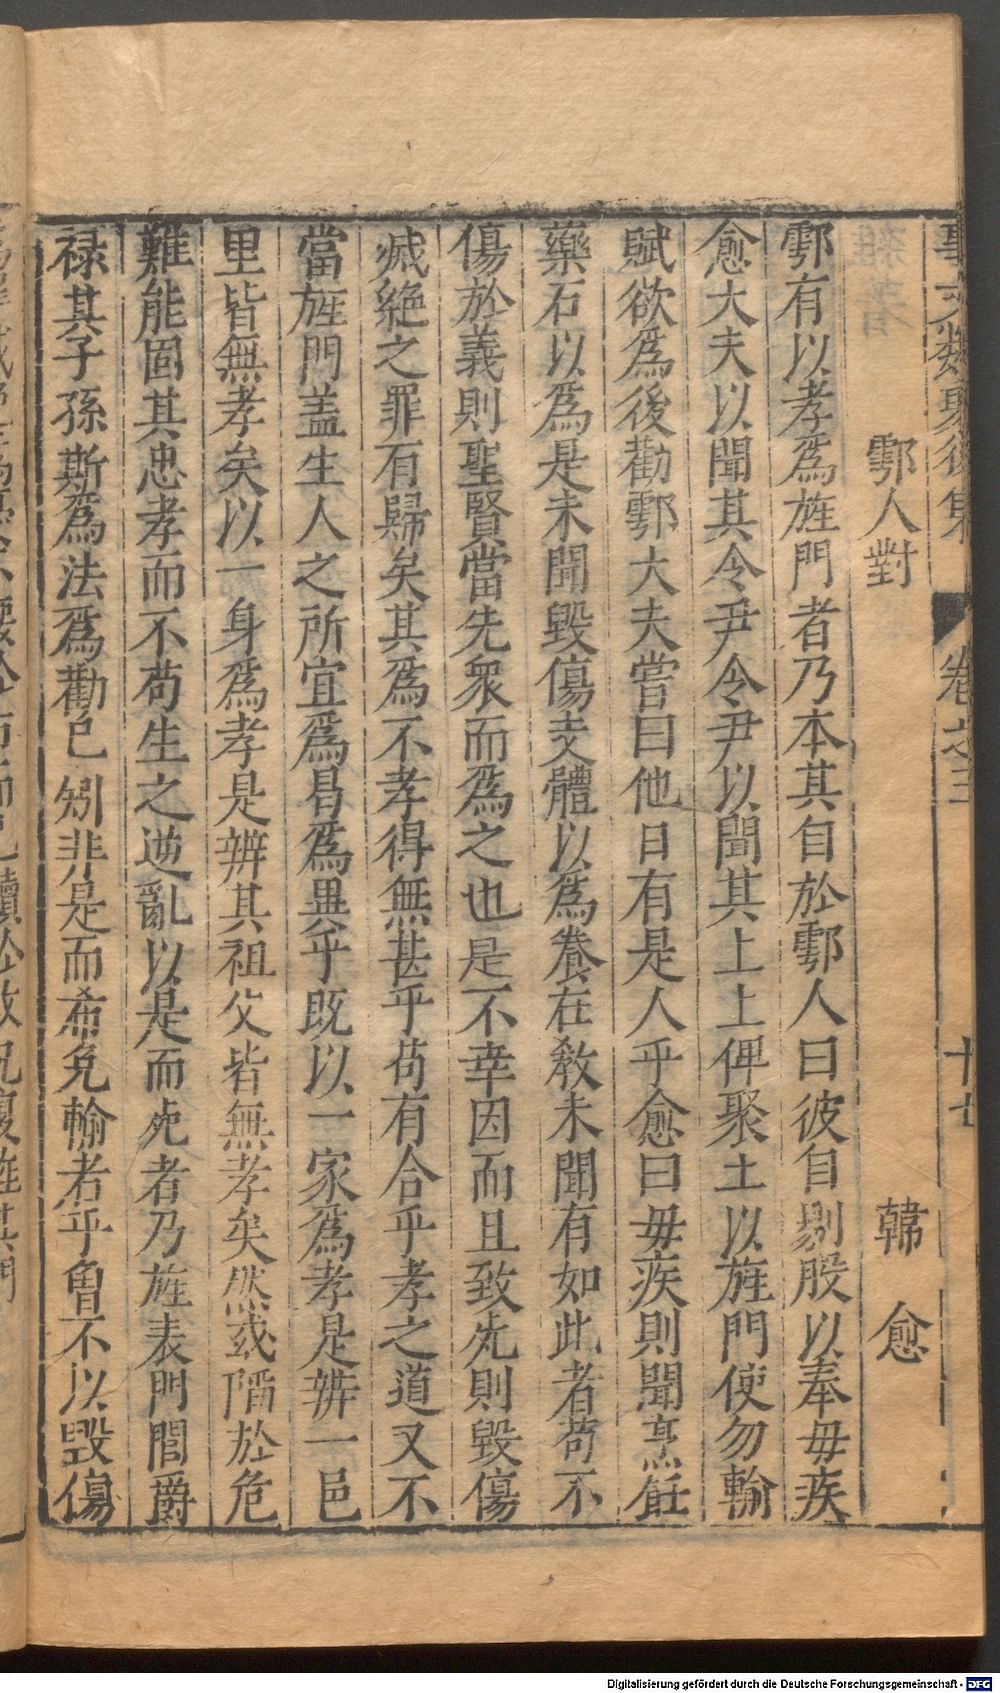 事文類聚後集 卷之三 十七
鄠人對 韓 愈
鄠有以孝爲旌門者乃本其自於鄠人曰彼自剔股以奉毋疾
愈大夫以聞其令尹令尹以聞其上上俾聚土以旌門使勿輸
賦欲爲後勸鄠大夫嘗曰他日有是人乎愈曰毋疾則聞烹飪
藥石以爲是未聞毀傷支體以爲養在敎未聞有如此者苟不
傷於義則聖賢當先衆而爲之也是不幸因而且致死則毀傷
滅絶之罪有歸矣其爲不孝得無甚乎苟有合乎孝之道又不
當旌門盖生人之所宜爲曷爲異乎既以一家爲孝是辨一邑
里皆無孝矣以一身爲孝是辨其祖父皆無孝矣然或陷於危
難能固其忠孝而不苟生之逆亂以是而死者乃旌表門閭爵
禄其子孫斯爲法爲勸已矧非是而希免輸者乎曾不以毀傷
Digitalisierung gefördert durch die Deutsche Forschungsgemeinschaft - DFG